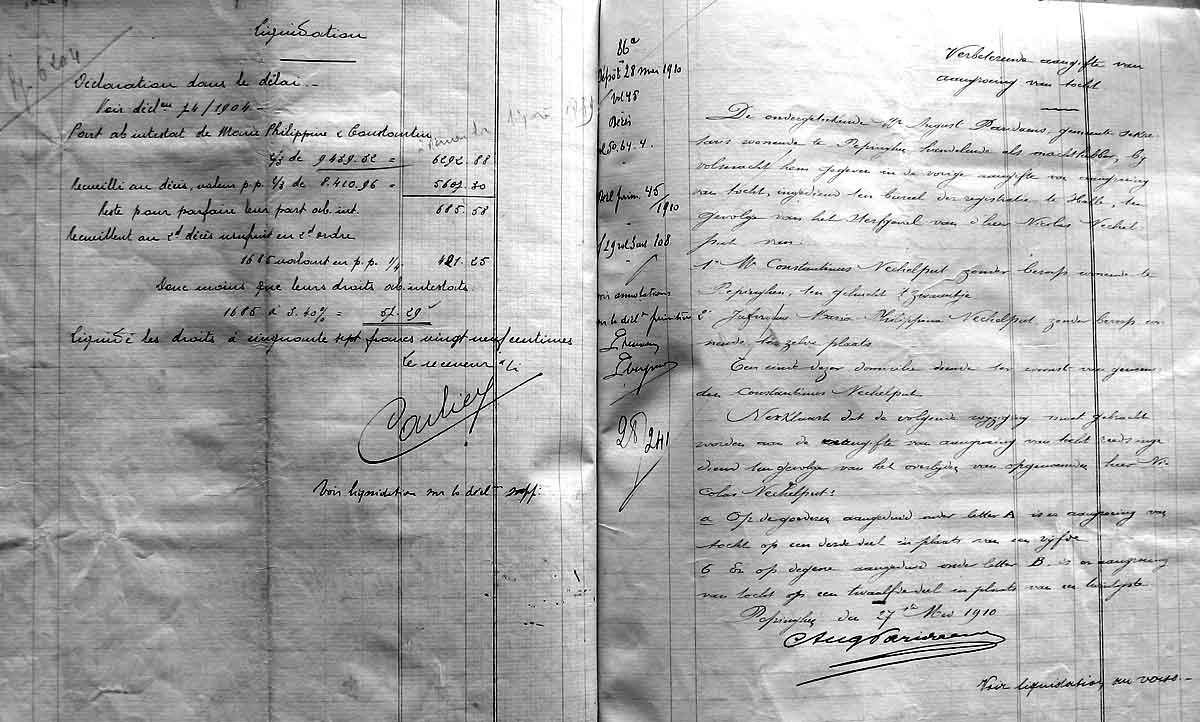 Liquidation
6204
Déclaration dans le délai
Voir déclon 24/1904
Part ab intestat de Marie Philippine & Constantin
2/3 de 9439.32 = 6292.88
Recueilli au décès, valeur p.p. 2/3 de 8.410.96 = 5607.30
Reste pour parfaire leur part ab int. 685.58
Recueillent au 2d décès usufruit en 2d ordre
1685 valant en p.p. 1/4 421.25
Donc moins que leurs droits ab intestats
1685 à 3.40% = 57.29
Liquidé les droits à cinquante sept francs vingt neuf centimes
Le receveur
Voir liquidation sur la décl. supp.
86a
Dépôt 28 mai 1910
Vol 48
Décès
50.64.4.
45/1910
108
voir annotations
sur la décl. primitive
28/241
Verbeterende aangifte van
aangroeiing van tocht
De ondergeteekende Mr August Paridaens, gemeente sekre
taris wonende te Pepinghen handelende als machthebber, bij
volmacht hem gegeven in de vorige aangifte van aangroeiing
van tocht, ingediend ten bureel der registratie te Halle, ten
gevolge van het sterfgeval van d'heer Nicolas Nechel
put van:
1° Mr Constantinus Nechelput zonder beroep wonende te
Pepinghen, ten gehucht
2° Jufvrouw Maria Philippina Nechelput zonder beroep wo
nende ten zelve plaats
Een dezer domicilie ten van genoem
den Constantinus Nechelput
Verklaart dat de volgende wijziging moet gebracht
worden aan de aangifte van aangroeiing van tocht reeds inge
diend ten gevolge van het overlijden van opgenoemden heer Ni
colas Nechelput:
a Op de goederen aangeduid onder letter A is er aangroeiing van
tocht op een derde deel in plaats van een vijfde
b En op degene aangeduid onder letter B is er aangroeiing
van tocht op een twaalfde deel in plaats van een twintigste
Pepinghen den 27sten Mei 1910
Aug Paridaens
Voir liquidation au verso